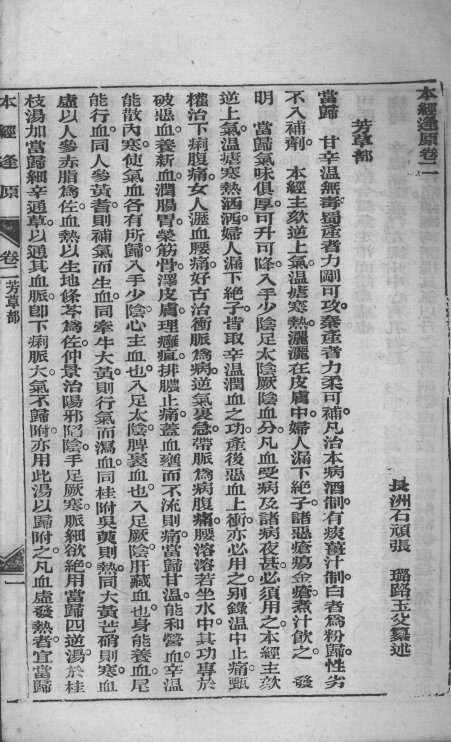 本經逢原卷二
長洲石頑張　璐路玉父纂述
芳草部
當歸　甘辛溫無毒。蜀產者力剛可攻。秦產者力柔可補。凡治本病酒制。有痰薑汁制。白者爲粉歸。性劣
不入補劑。　本經主欬逆上氣。溫瘧寒熱。灑灑在皮膚中。婦人漏下絕子。諸惡瘡瘍金瘡。煮汁飲之。　發
明　當歸氣味俱厚。可升可降。入手少陰足太陰厥陰血分。凡血受病及諸病夜甚。必須用之。本經主欬
逆上氣。溫瘧寒熱。洒洒。婦人漏下絕子。皆取辛溫潤血之功。產後惡血上衝。亦必用之。別錄溫中止痛。甄
權治下痢腹痛。女人瀝血腰痛。好古治衝脈爲病。逆氣裏急。帶脈爲病。腹痛腰溶溶若坐水中。其功專於
破惡血。養新血。潤腸胃。榮筋骨。澤皮膚。理癰瘍。排膿止痛。蓋血壅而不流則痛。當歸甘溫能和營血。辛溫
能散內寒。使氣血各有所歸。入手少陰。心主血也。入足太陰。脾裹血也。入足厥陰。肝藏血也。身能養血。尾
能行血。同人參黃耆。則補氣而生血。同牽牛大黃。則行氣而瀉血。同桂附吳萸則熱。同大黃芒硝則寒。血
虛以人參赤脂爲佐。血熱以生地條芩爲佐。仲景治陽邪陷陰。手足厥寒。脈細欲絕。用當歸四逆湯。於桂
枝湯加當歸細辛通草。以通其血脈。卽下痢脈大。氣不歸附。亦用此湯以歸附之。凡血虛發熱者。宜當歸
本經逢原
卷二芳草部
一